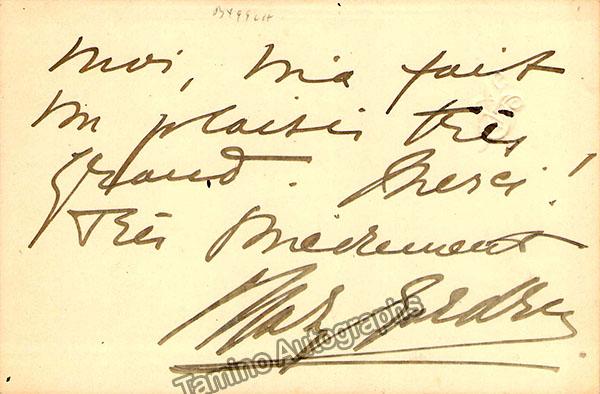 moi, m'a fait
un plaisir très
grand. Merci!
Très sincèrement
Mary Garden
Tamino Autographs